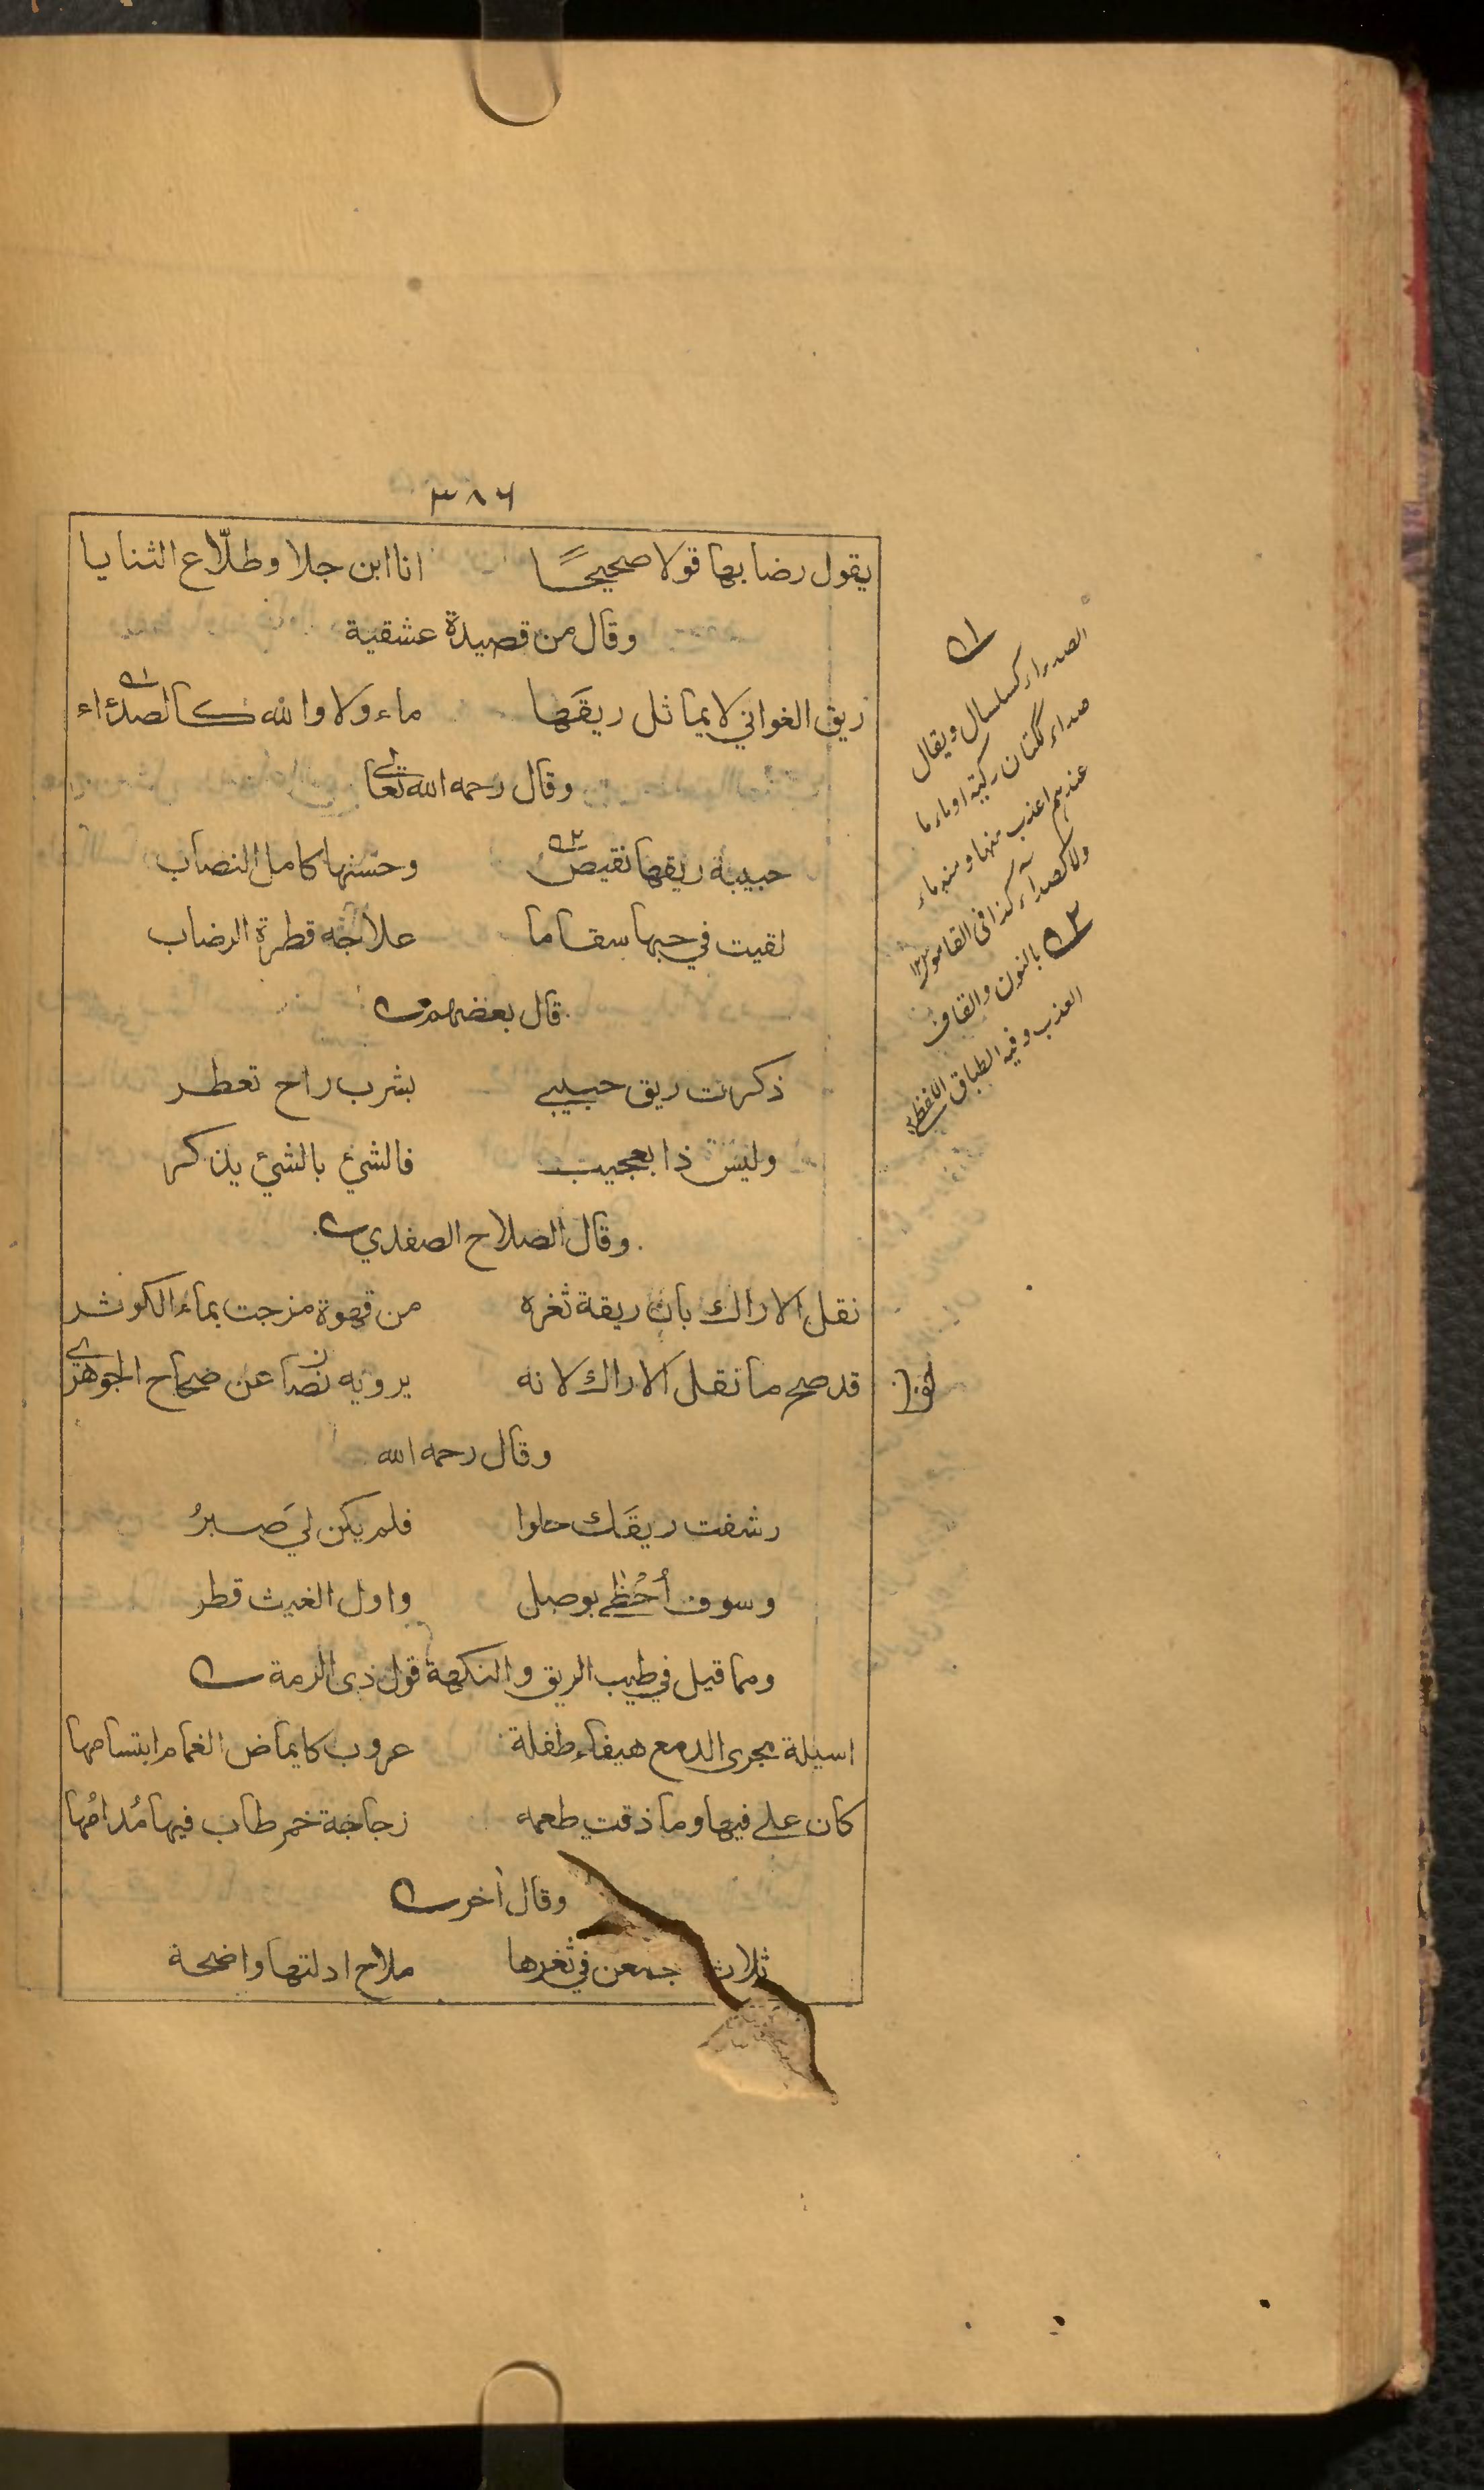 ٣٨٦
يقول رضابها قولا صحيحًا انا ابن جلا وطلّاع الثنايا
وقال من قصيدة عشقية
ريق الغواني لا يماثل ريقَها ماء ولا والله كالصدءاء
وقال رحمه الله تعالى
حبيبة ريقها نقيص وحسنها كامل النصاب
لقيت في حبها سقاما علاجه قطرة الرضاب
قال بعضهم
ذكرت ريق حبيبي بشرب راح تعطر
وليس ذا بعجيب فالشئ بالشئ يذكر
وقال الصلاح الصفدي
نقل الاراك بان ريقة ثغره من قهوة مزجت بماء الكوثر
قد صح ما نقل الاراك لانه يرويه نصا عن صحاح الجوهري
وقال رحمه الله
رشفت ريقَك حلوا فلم يكن لي صبرُ
وسوف أحْظى بوصل واول الغيث قطر
ومما قيل في طيب الريق والنكهة قول ذى الرمة
اسيلة مجرى الدمع هيفاء طفلة عروب كايماض الغمام ابتسامها
كان على فيها وما ذقت طعمه زجاجة خمر طاب فيها مُدامُها
وقال أخر
ثلاث جمعن في ثغرها ملاح ادلتها واضحة
١
الصدراء كسلسال ويقال
صداء ككتان ركية او ماء ما
عندهم اعذب منها ومنه ماء
ولا كصدآء كذا فى القاموس ١٢
٢ بالنون والقاف
العذب وفيه الطباق اللفظي ١٢